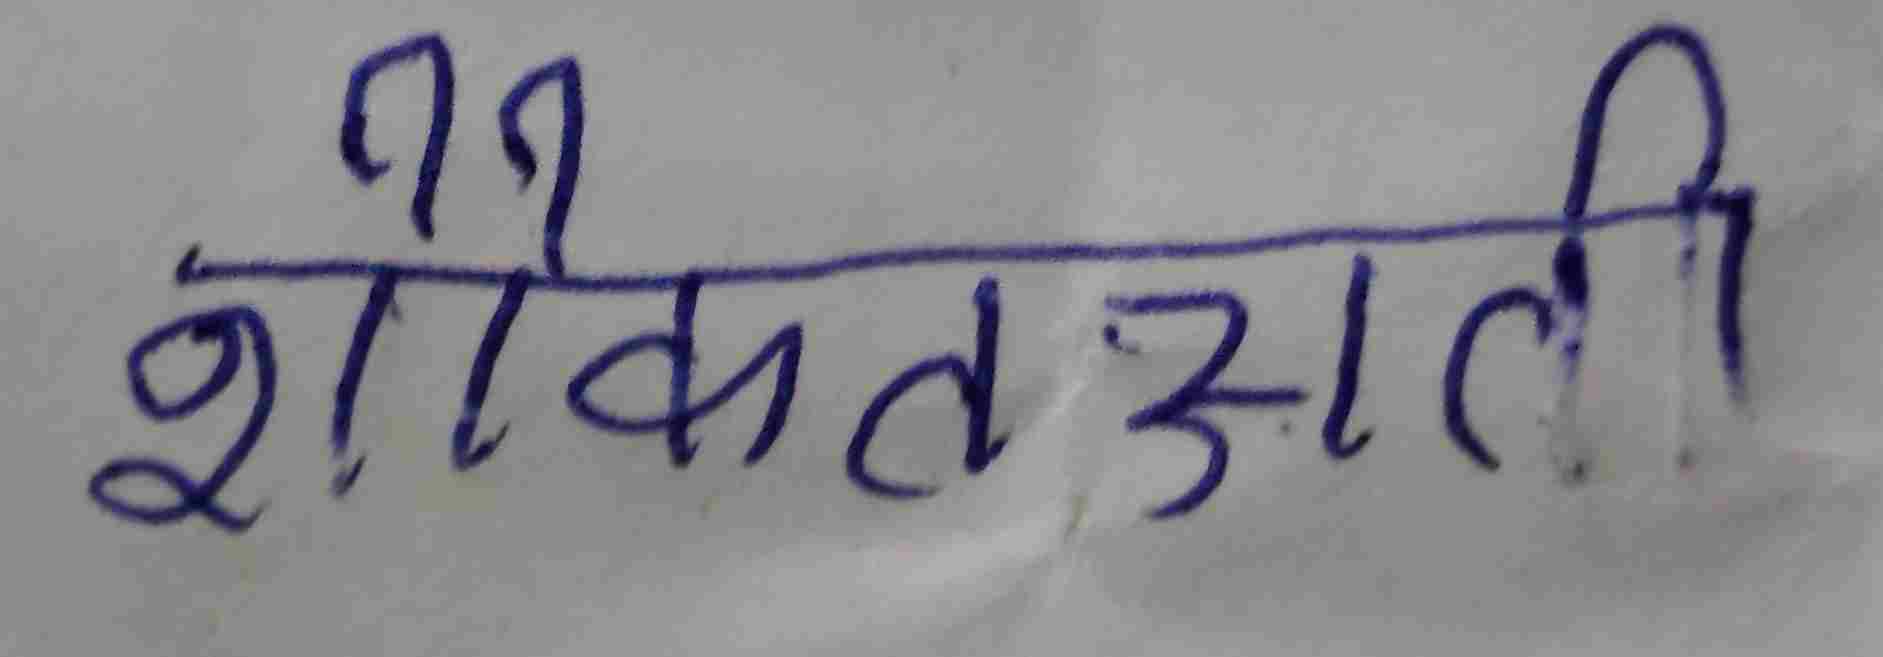 शौकतअली